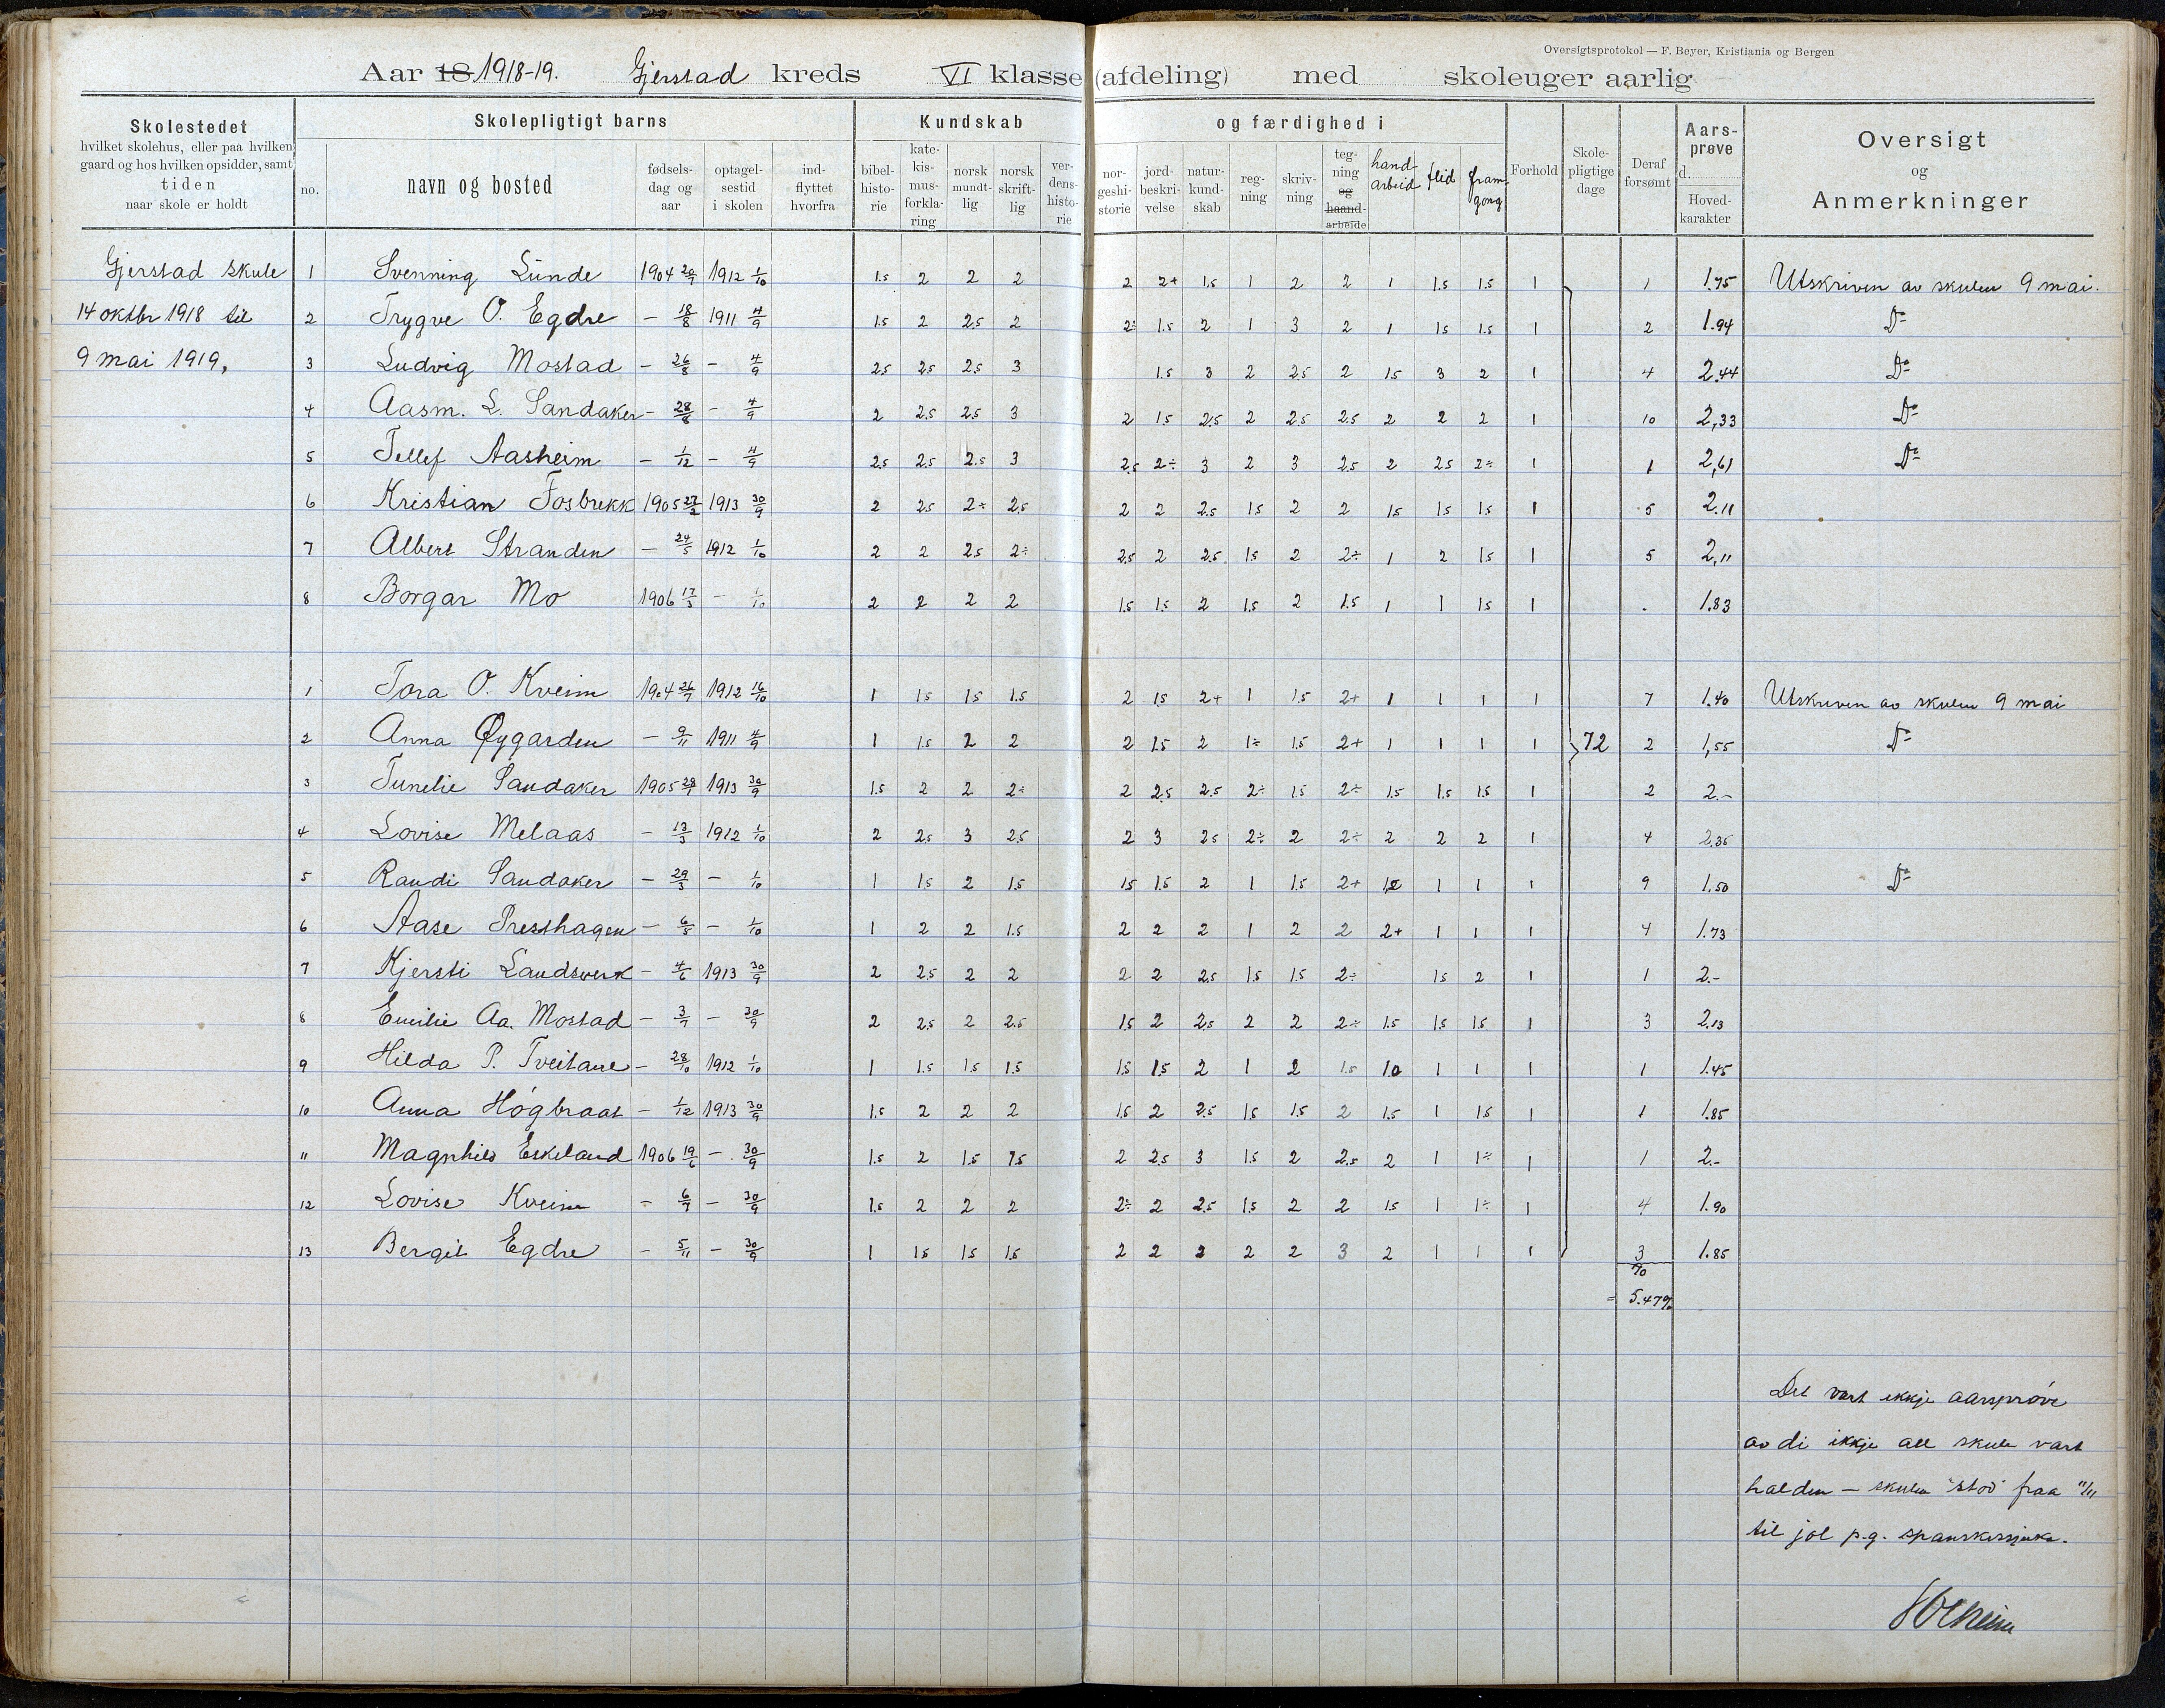 Oversigtsprotokol — F. Beyer, Kristiania og Bergen
Aar 18 1918-19. Gjerstad kreds VI klasse (afdeling) med skoleuger aarlig
Skolestedet
hvilket skolehus, eller paa hvilken
gaard og hos hvilken opsidder, samt
tiden
naar skole er holdt
Skolepligtigt barns
no.
navn og bosted
fødsels-
dag og
aar
optagel-
sestid
i skolen
ind-
flyttet
hvorfra
Kundskab og færdighed i
bibel-
histo-
rie
kate-
kis-
mus-
forkla-
ring
norsk
mundt-
lig
norsk
skrift-
lig
ver-
dens-
histo-
rie
nor-
geshi-
storie
jord-
beskri-
velse
natur-
kund-
skab
reg-
ning
skriv-
ning
teg-
ning
og
haand-
arbeide
hand-
arbeid
flid
fram-
gong
Forhold
Skole-
pligtige
dage
Deraf
forsømt
Aars-
prøve
d.
Hoved-
karakter
Oversigt
og
Anmerkninger
Gjerstad skule
14 oktbr 1918 til
9 mai 1919,
1 Svenning Lunde 1904 20/9 1912 1/10 1.5 2 2 2 2 2+ 1.5 1 2 2 1 1.5 1.5 1 1 1.75 Utskriven av skulen 9 mai.
2 Trygve O. Egdre — 18/8 1911 4/9 1.5 2 2.5 2 2÷ 1.5 2 1 3 2 1 1.5 1.5 1 2 1.94 Do
3 Ludvig Mostad — 26/8 — 4/9 2.5 2.5 2.5 3 1.5 3 2 2.5 2 1.5 3 2 1 4 2.44 Do
4 Aasm. L. Sandaker — 28/8 — 4/9 2 2.5 2.5 3 2 1.5 2.5 2 2.5 2.5 2 2 2 1 10 2,33 Do
5 Tellef Aasheim — 1/12 — 4/9 2.5 2.5 2.5 3 2.5 2÷ 3 2 3 2.5 2 2.5 2÷ 1 1 2,61 Do
6 Kristian Fosbrekk 1905 27/2 1913 30/9 2 2.5 2÷ 2.5 2 2 2.5 1.5 2 2 1.5 1.5 1.5 1 5 2.11
7 Albert Stranden — 24/5 1912 1/10 2 2 2.5 2÷ 2.5 2 2.5 1.5 2 2÷ 1 2 1.5 1 5 2,11
8 Borgar Mo 1906 17/3 — 1/10 2 2 2 2 1.5 1.5 2 1.5 2 1.5 1 1 1.5 1 . 1.83
1 Tora O. Kveim 1904 26/7 1912 16/10 1 1.5 1.5 1.5 2 1.5 2+ 1 1.5 2+ 1 1 1 1 7 1.40 Utskriven av skulen 9 mai
2 Anna Øygarden — 9/11 1911 4/9 1 1.5 2 2 2 1.5 2 1÷ 1.5 2+ 1 1 1 1 72 2 1,55 Do
3 Tunelie Sandaker 1905 28/1 1913 30/9 1.5 2 2 2÷ 2 2.5 2.5 2÷ 1.5 2÷ 1.5 1.5 1.5 1 2 2.-
4 Lovise Melaas — 13/3 1912 1/10 2 2.5 3 2.5 2 3 2.5 2÷ 2 2÷ 2 2 2 1 4 2.35
5 Randi Sandaker — 29/3 — 1/10 1 1.5 2 1.5 1.5 1.5 2 1 1.5 2+ 1.0 1 1 1 9 1.50 Do
6 Aase Presthagen — 6/5 — 1/10 1 2 2 1.5 2 2 2 1 2 2 2+ 1 1 1 4 1.73
7 Kjersti Landsverk — 4/6 1913 30/9 2 2.5 2 2 2 2 2.5 1.5 1.5 2÷ 1.5 2 1 1 2.-
8 Emilie Aa. Mostad — 3/7 — 30/9 2 2.5 2 2.5 1.5 2 2.5 2 2 2÷ 1.5 1.5 1.5 1 3 2,13
9 Hilda P. Tveitane — 28/10 1912 1/10 1 1.5 1.5 1.5 1.5 1.5 2 1 2 1.5 1.0 1 1 1 1 1.45
10 Anna Høgbraat — 1/12 1913 30/9 1.5 2 2 2 1.5 2 2.5 1.5 1.5 2 1.5 1 1.5 1 1 1.85
11 Magnhild Eskeland 1906 19/6 — 30/9 1.5 2 1.5 1.5 2 2.5 3 1.5 2 2.5 2 1 1÷ 1 1 2.-
12 Lovise Kveim — 6/9 — 30/9 1.5 2 2 2 2÷ 2 2.5 1.5 2 2 1.5 1 1÷ 1 4 1.90
13 Bergit Egdre — 5/11 — 30/9 1 1.5 1.5 1.5 2 2 2 2 2 3 2 1 1 1 3 1.85
70
= 5.47%
Det vart ikkje aarsprøve
av di ikkje all skule vart
halden — skulen "stod" fraa 11/11
til jol p.g. spanskesjuka.